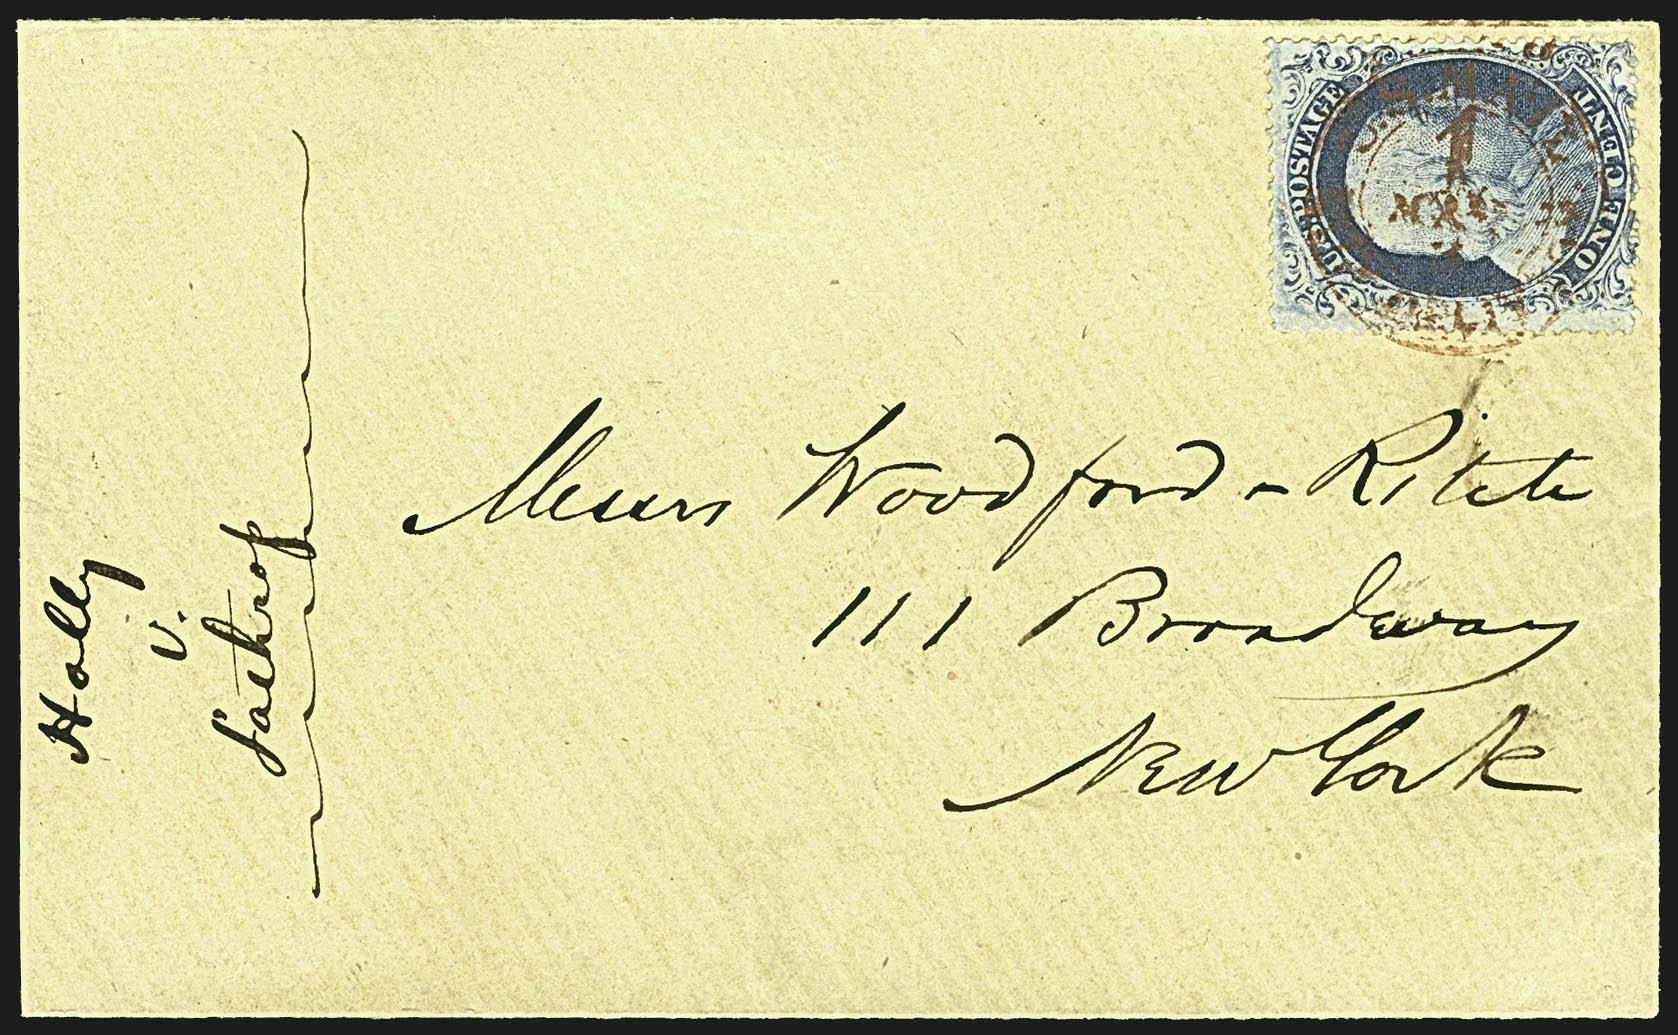 Messrs Woodford & Ritch
111 Broadway
New York
Holly
v.
Lathrop
U.S. POSTAGE
ONE CENT
U.S. MAIL
1